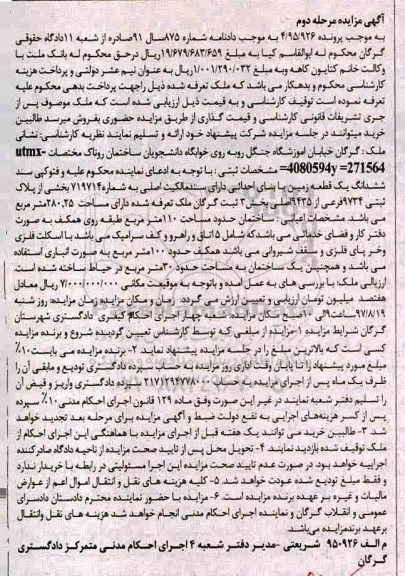 آگهی مزایده مرحله دوم
به موجب پرونده 4/95/926 به موجب دادنامه شماره 875سال 91صادره از شعبه 11دادگاه حقوقی
گرگان محکوم له ابوالقاسم کیا به مبلغ 19/679/683/659ریال درحق محکوم له بانک ملت با
وکالت خانم کتابون کاهه وبه مبلغ 1/001/290/032ریال به عنوان نیم عشر دولتی و پرداخت هزینه
کارشناسی محکوم و بدهکار می باشد که ملک تعرفه شده ذیل راجهت پرداخت بدهی محکوم علیه
تعرفه نموده است توقیف کارشناسی و به قیمت ذیل ارزیابی شده است که ملک موصوف پس از
جری تشریفات قانونی کارشناسی و قیمت گذاری از طریق مزایده حضوری بفروش میرسد طالبین
خرید میتوانند در جلسه مزایده شرکت پیشنهاد خود ارائه و تسلیم نمایند نظریه کارشناسی: نشانی
ملک : گرگان خیابان اموزشگاه جنگل روبه روی خوابگاه دانشجویان ساختمان روناک مختصات utmx-
4080594y =271564= مشخصات ثبتی : با توجه به ادعای نماینده محکوم علیه و فتوکپی سند
ششدانگ یک قطعه زمین با بنای احداثی دارای سندمالکیت اصلی به شماره719714 بخشی از پلاک
ثبتی 9734فرعی از 9435اصلی بخش2 ثبت گرگان ملک تعرفه شده دارای مساحت 280.25مترمربع
می باشد مشخصات اعیانی : ساختمان حدود مساحت 110متر مربع طبقه روی همکف به صورت
دفتر کار و فضای خدماتی می باشدکه شامل 5 اتاق و راهرو و کف سرامیک می باشد با اسکلت فلزی
وخر پای فلزی و سقف شیروانی می باشد همکف حدود 100متر مربع به صورت انباری استفاده
می باشد و همچنین یک ساختمان به مساحت حدود 30متر مربع در حیاط ساخته شده است
ارزیالی ملک: با بررسی های به عمل امده و باتوجه به موقیعت مکانی 7/000/000/000 ریال معادل
هفتصد میلیون تومان ارزیابی و تعیین ارزش می گردد. زمان و مکان مزایده زمان مزایده: روز شنبه
97/8/19ساعت9الی 10صبح مکان مزایده شعبه چهار اجرای احکام کیفری دادگستری شهرستان
گرگان شرایط مزایده 1-مزایده از مبلغی که توسط کارشناس تعیین گردیده شروع و برنده مزایده
کسی است که بالاترین مبلغ را در جلسه مزایده پیشنهاد نماید 2- برنده مزایده می بایست10%
مبلغ مورد پیشنهاد را تا پایان وقت اداری روز مزایده به حساب سپرده دادگستری تودیع و مابقی آن را
ظرف یک ماه پس از اجرای مزایده به حساب 2171294778000 سپرده دادگستری واریز و فیض آن
را تسلیم دفتر شعبه نمایند در غیر این صورت وفق ماده 129 قانون اجرای احکام مدنی10% سپرده
پس از کسر هزینه های اجرایی به نفع دولت ضبط و آگهی مزایده برای مرحله بعد تجدید خواهد
شد 3- طالبین خرید می توانند یک هفته قبل از اجرای مزایده با هماهنگی این اجرای احکام از
ملک توقیف شده بازدید نمایند 4- تحویل محل پس از تایید صحت مزایده از ناحیه دادگاه صادرکننده
اجراییه خواهد بود. در صورت عدم تایید صحت مزایده این اجرا مسئولیتی در رابطه با خریدار ندارد
و فقط مبلغ تودیع شده عودت خواهد شد. 5- کلیه هزینه های نقل و انتقال اموال اعم از عوارض
مالیات و غیره بر عهده برنده مزایده است. 6- مزایده با حضور نماینده محترم دادستان دادسرای
عمومی و انقلاب گرگان و نماینده اجرای احکام مدنی انجام خواهد شد هزینه های نقل وانتقال
برعهد برندمزایده می‌باشد.
م الف 950926 شریعتی -مدیر دفتر شعبه 4 اجرای احکام مدنی متمرکز دادگستری
گرگان